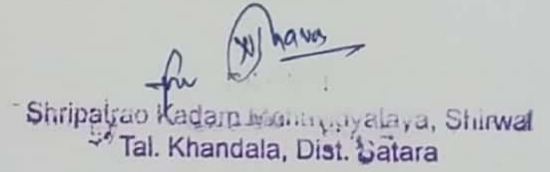 for
Shripatrao Kadam Mahavidyalaya, Shirwal
Tal. Khandala, Dist. Satara